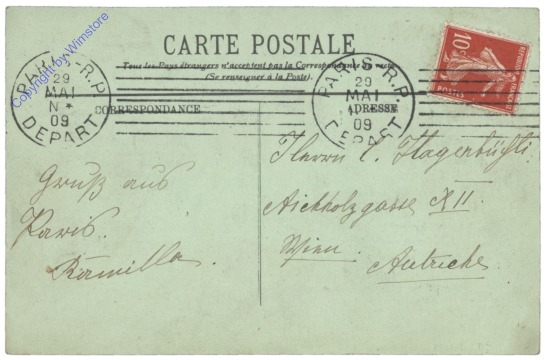 Copyright by Wimstore
CARTE POSTALE
Tous les Pays étrangers n'acceptent pas la Correspondance au recto
(Se renseigner à la Poste).
PARIS-R.P.
29
MAI
N *
09
DEPART
PARIS-R.P.
29
MAI
09
DEPART
10c
REPUBLIQUE FRANÇAISE
POSTES
CORRESPONDANCE
ADRESSE
Gruß aus
Paris.
Kamilla.
Herrn C. Hagenbüchli
Aichholzgasse XII.
Wien.
Autriche